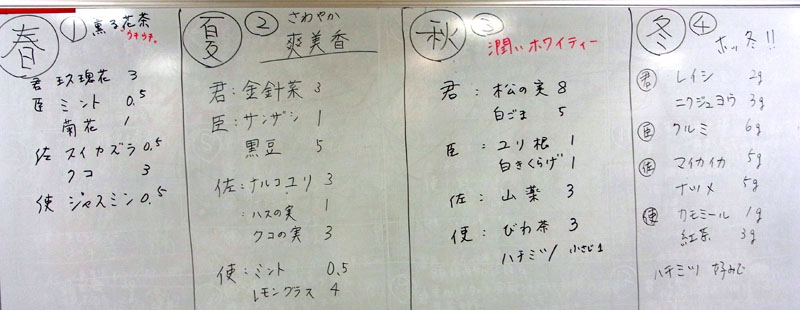 春 ① 薫る花茶
ウキウキ。
君 玖瑰花 3
臣 ミント 0.5
菊花 1
佐 スイカズラ 0.5
クコ 3
使 ジャスミン 0.5
夏 ② さわやか
爽美香
君:金針菜 3
臣:サンザシ 1
黒豆 5
佐:ナルコユリ 3
:ハスの実 1
クコの実 3
使:ミント 0.5
レモングラス 4
秋 ③
潤いホワイティー
君:松の実 8
白ごま 5
臣:ユリ根 1
白きくらげ 1
佐:山薬 3
使:びわ茶 3
ハチミツ 小さじ1
冬 ④
ホッ冬!!
君 レイシ 2g
ニクジュヨウ 3g
臣 クルミ 6g
佐 マイカイカ 5g
ナツメ 5g
使 カモミール 1g
紅茶 3g
ハチミツ 好みで